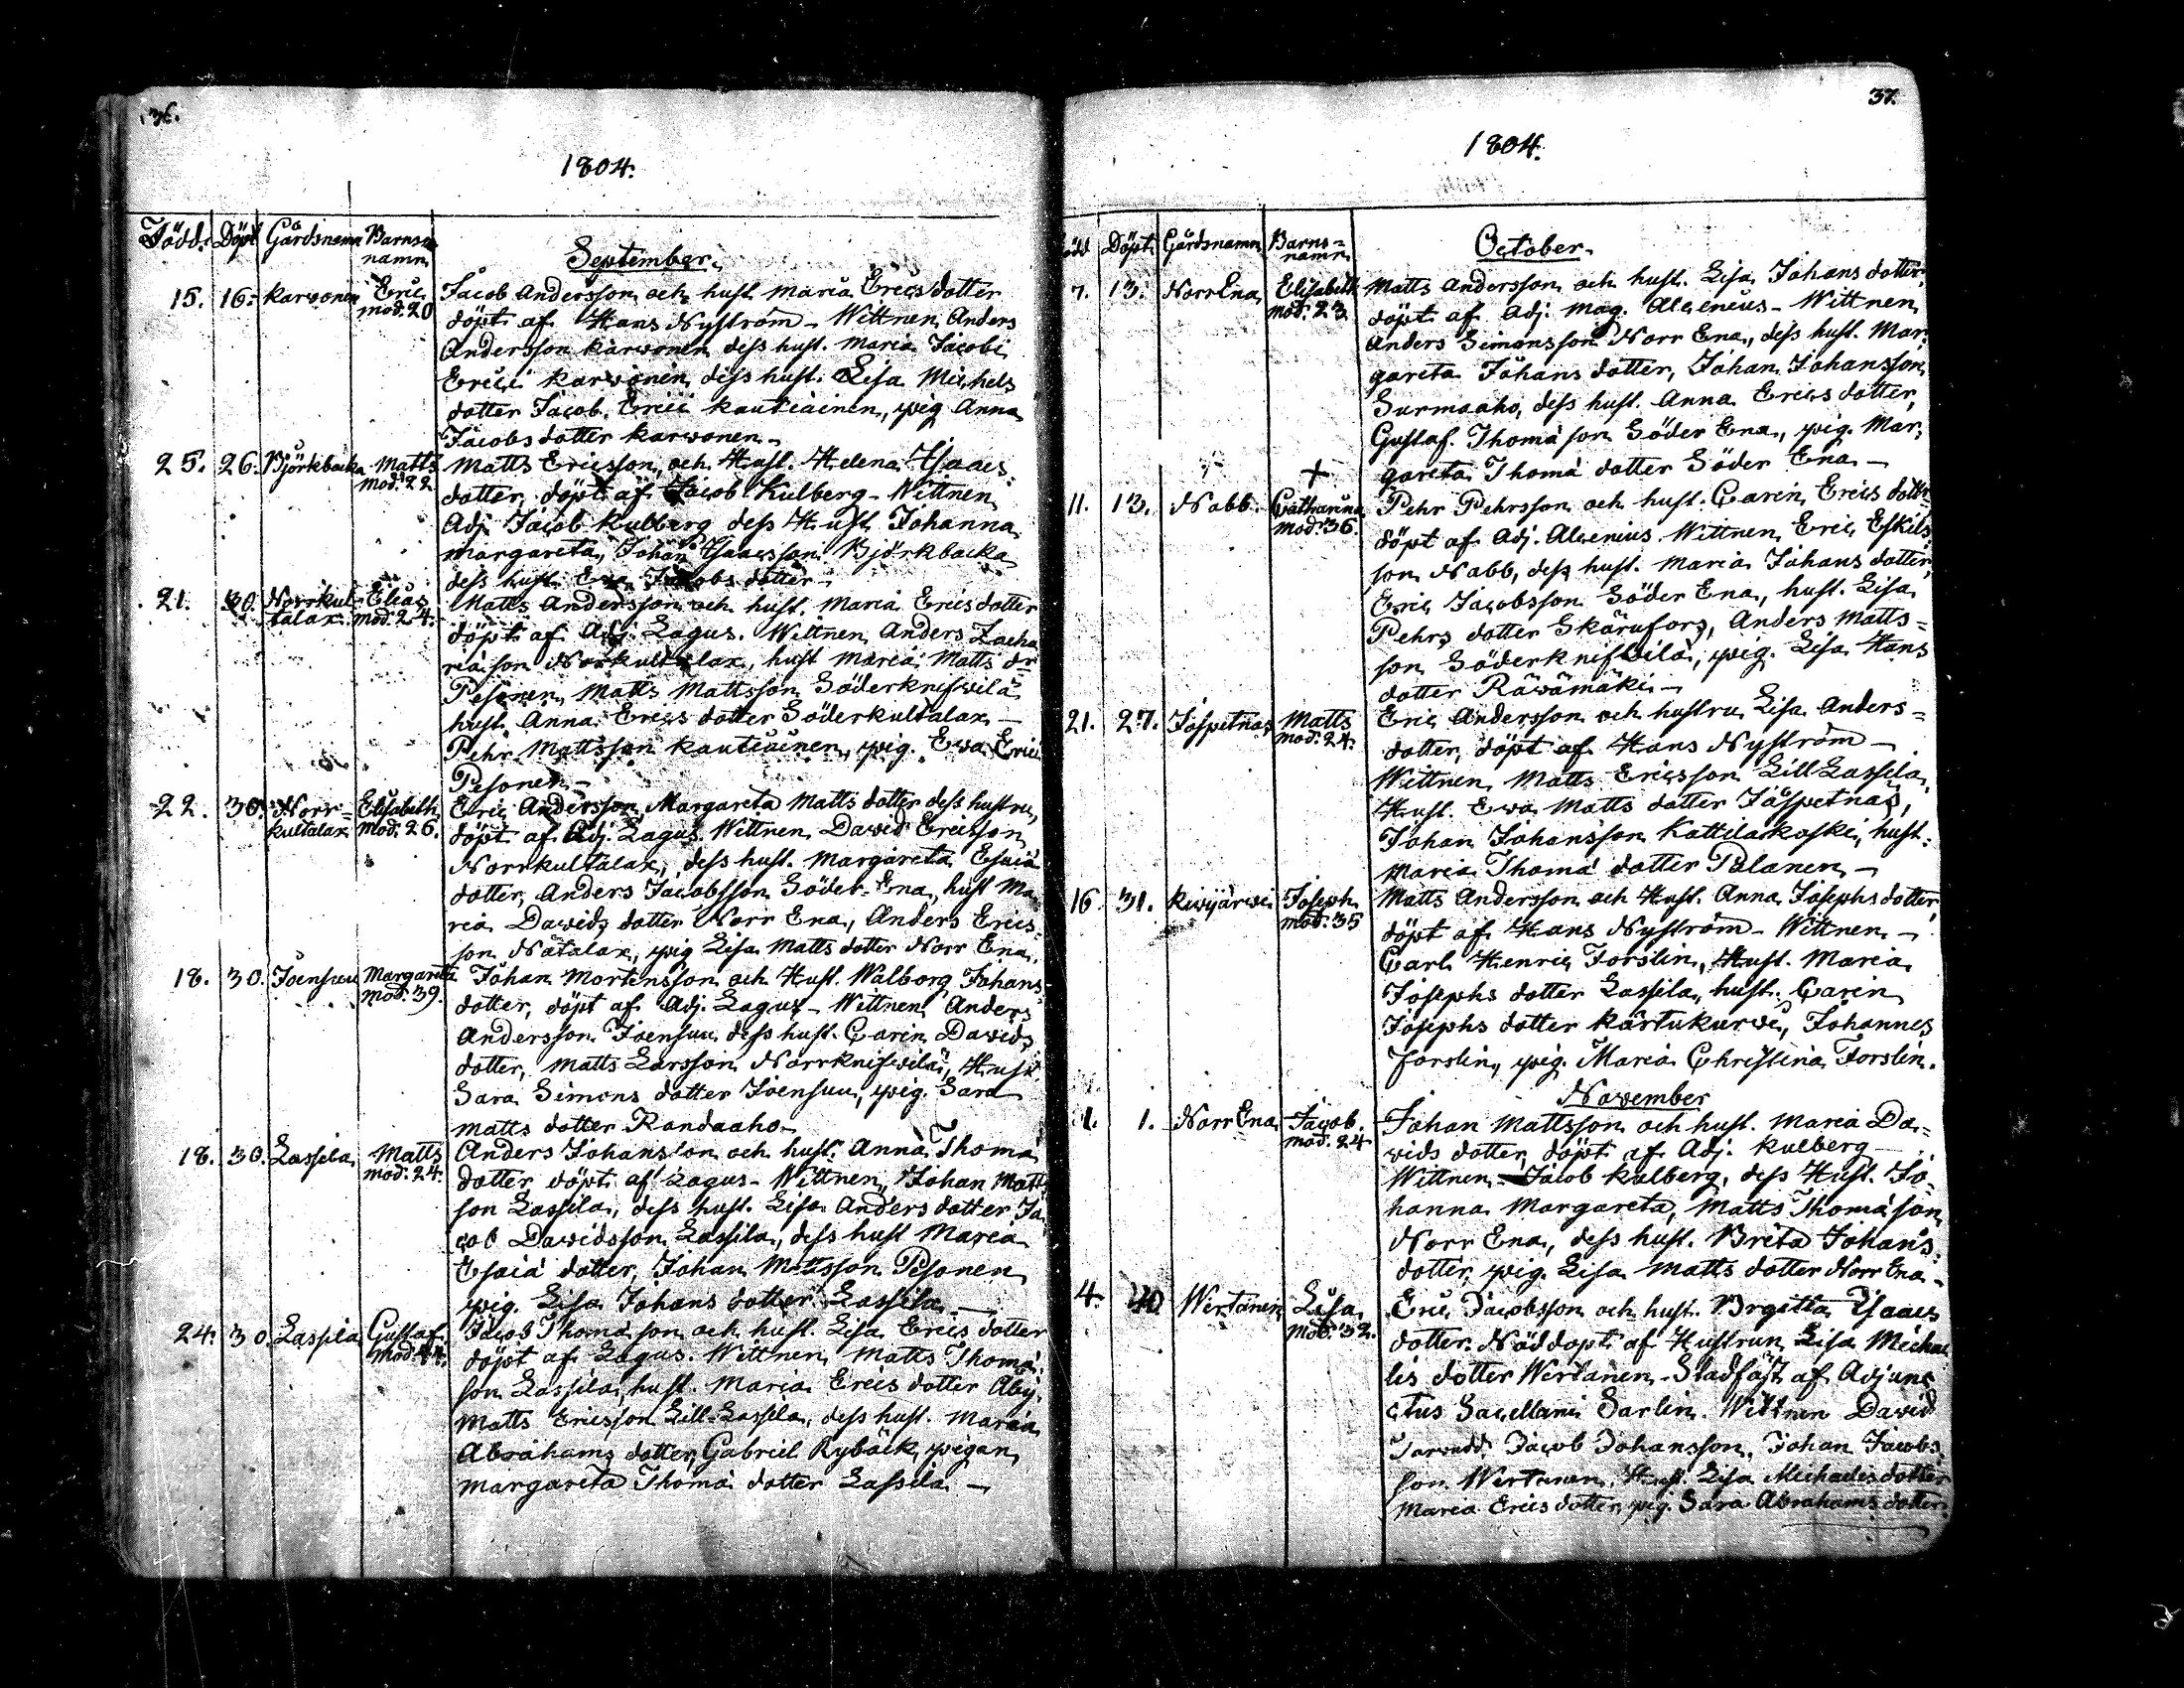 36.
1804.
Född. Döpt Gårdsnamn Barnsnamn
September.
15. 16. Karvonen Eric mod. 20 Jacob Andersson och hust Maria Ericsdotter
döpt af Hans Nyström - Wittnen Anders
Andersson Karvonen dess hust. Maria Jacobi
Erici Karvonen dess hust. Lisa Michels
dotter Jacob Erici Kautiainen, pig Anna
Jacobs dotter Karvonen -
25. 26. Björkbacka Matts mod. 22 Matts Ericsson och Hust. Helena Isaacs
dotter, döpt af Jacob Kulberg - Wittnen
Adj. Jacob Kulberg dess Hust Johanna
Margareta, Johan Isaacsson Björkbacka
dess hust. Ewa Jacobs dotter -
21. 30. Norrkultalax Elias mod. 24. Matts Andersson och hust. Maria Ericsdotter
döpt af Adj. Lagus. Wittnen Anders Zacha
riæ son Norkultalax, hust Maria Matts dr
Pesonen Matts Mattsson Söderknifwilä
hust. Anna Erics dotter Söderkultalax -
Pehr Mattsson Kautiainen, pig. Ewa Erici
Pesonen -
22. 30. Norrkultalax Elisabeth mod. 26. Eric Andersson Margareta Matts dotter dess hustru,
döpt af Adj. Lagus Wittnen David Ericsson
Norrkultalax, dess hust. Margareta Esaiæ
dotter, Anders Jacobsson Söder-Ena, hust Ma
ria Davids dotter Norr Ena, Anders Erics=
son Nätalax, pig Lisa Matts dotter Norr Ena.
18. 30. Joensuu Margareta mod. 39. Johan Mortensson och Hust. Walborg Johans
dotter, döpt af Adj. Lagus - Wittnen Anders
Andersson Joensuu dess hust. Carin Davids
dotter, Matts Larsson Norrknifwilä, Hust
Sara Simons dotter Joensuu, pig. Sara
Matts dotter Randaaho -
18. 30. Lassila Matts mod. 24. Anders Johansson och hust. Anna Thomæ
dotter döpt af Lagus - Wittnen Johan Matts
son Lassila, dess hust. Lisa Anders dotter Ja
cob Davidsson Lassila, dess hust Maria
Esaiæ dotter, Johan Mattsson Pesonen
pig. Lisa Johans dotter Lassila -
24. 30. Lassila Gustaf Jacob Thomæ son och hust. Lisa Erics dotter
döpt af Lagus. Wittnen Matts Thomæ
son Lassila, hust. Maria Erics dotter Aby
Matts Ericsson Lill-Lassila, dess hust. Maria
Abrahams dotter, Gabriel Rybäck pigan
Margareta Thomæ dotter Lassila -
37.
1804.
ödd Döpt Gårdsnamn Barns=namn
October.
7. 13. Norr Ena Elisabeth mod. 23 Matts Andersson och hust. Lisa Johans dotter
döpt af Adj. Mag. Alcenius - Wittnen
Anders Simonsson Norr Ena, dess hust. Mar
gareta Johans dotter, Johan Johansson
Surmaaho, dess hust. Anna Erics dotter,
Gustaf Thomæ son Söder Ena, pig. Mar
gareta Thomæ dotter Söder Ena -
11. 13. Nabb + Catharina mod. 36. Pehr Pehrsson och hust. Carin Erics dotter
döpt af Adj. Alcenius Wittnen Eric Eskils
son Nabb, dess hust. Maria Johans dotter,
Eric Jacobsson Söder Ena, hust. Lisa
Pehrs dotter Skärufors, Anders Matts=
son Söderknifwilä, pig. Lisa Hans
dotter Räwämäki -
21. 27. Jospetnas Matts mod. 24. Eric Andersson och hustru Lisa Anders=
dotter, döpt af Hans Nyström -
Wittnen Matts Ericsson Lill Lassila,
Hust. Ewa Matts dotter Jåspetnas,
Johan Johansson Kattilakoski, hust.
Maria Thomæ dotter Palanen -
16 31. Kivijärwi Joseph mod. 35 Matts Andersson och Hust. Anna Josephs dotter,
döpt af Hans Nyström - Wittnen -
Carl Henric Forslin, Hust. Maria
Josephs dotter Lassila, hust. Carin
Josephs dotter Kärtukurwi, Johannes
Forslin, pig. Maria Christina Forslin.
November
1. 1. Norr Ena Jacob. mod. 24 Johan Mattsson och hust. Maria Da=
vids dotter, döpt af Adj. Kulberg -
Wittnen - Jacob Kulberg, dess Hust. Jo
hanna Margareta, Matts Thomæ son
Norr Ena, dess hust. Brita Johans
dotter, pig. Lisa Matts dotter Norr Ena -
4. Wertanen Lisa mod. 32. Eric Jacobsson och hust. Brgitta Isaacs
dotter. Nöddopt af Hustrun Lisa Michae
lis dotter Wertanen - Stadfäst af Adjunc
ctus Sacellani Sarlin. Wittnen David
Jacob Johansson, Johan Jacobs
son Wertanen, Hust. Lisa Michaelis dotter
Maria Erics dotter, pig. Sara Abrahams dotter.